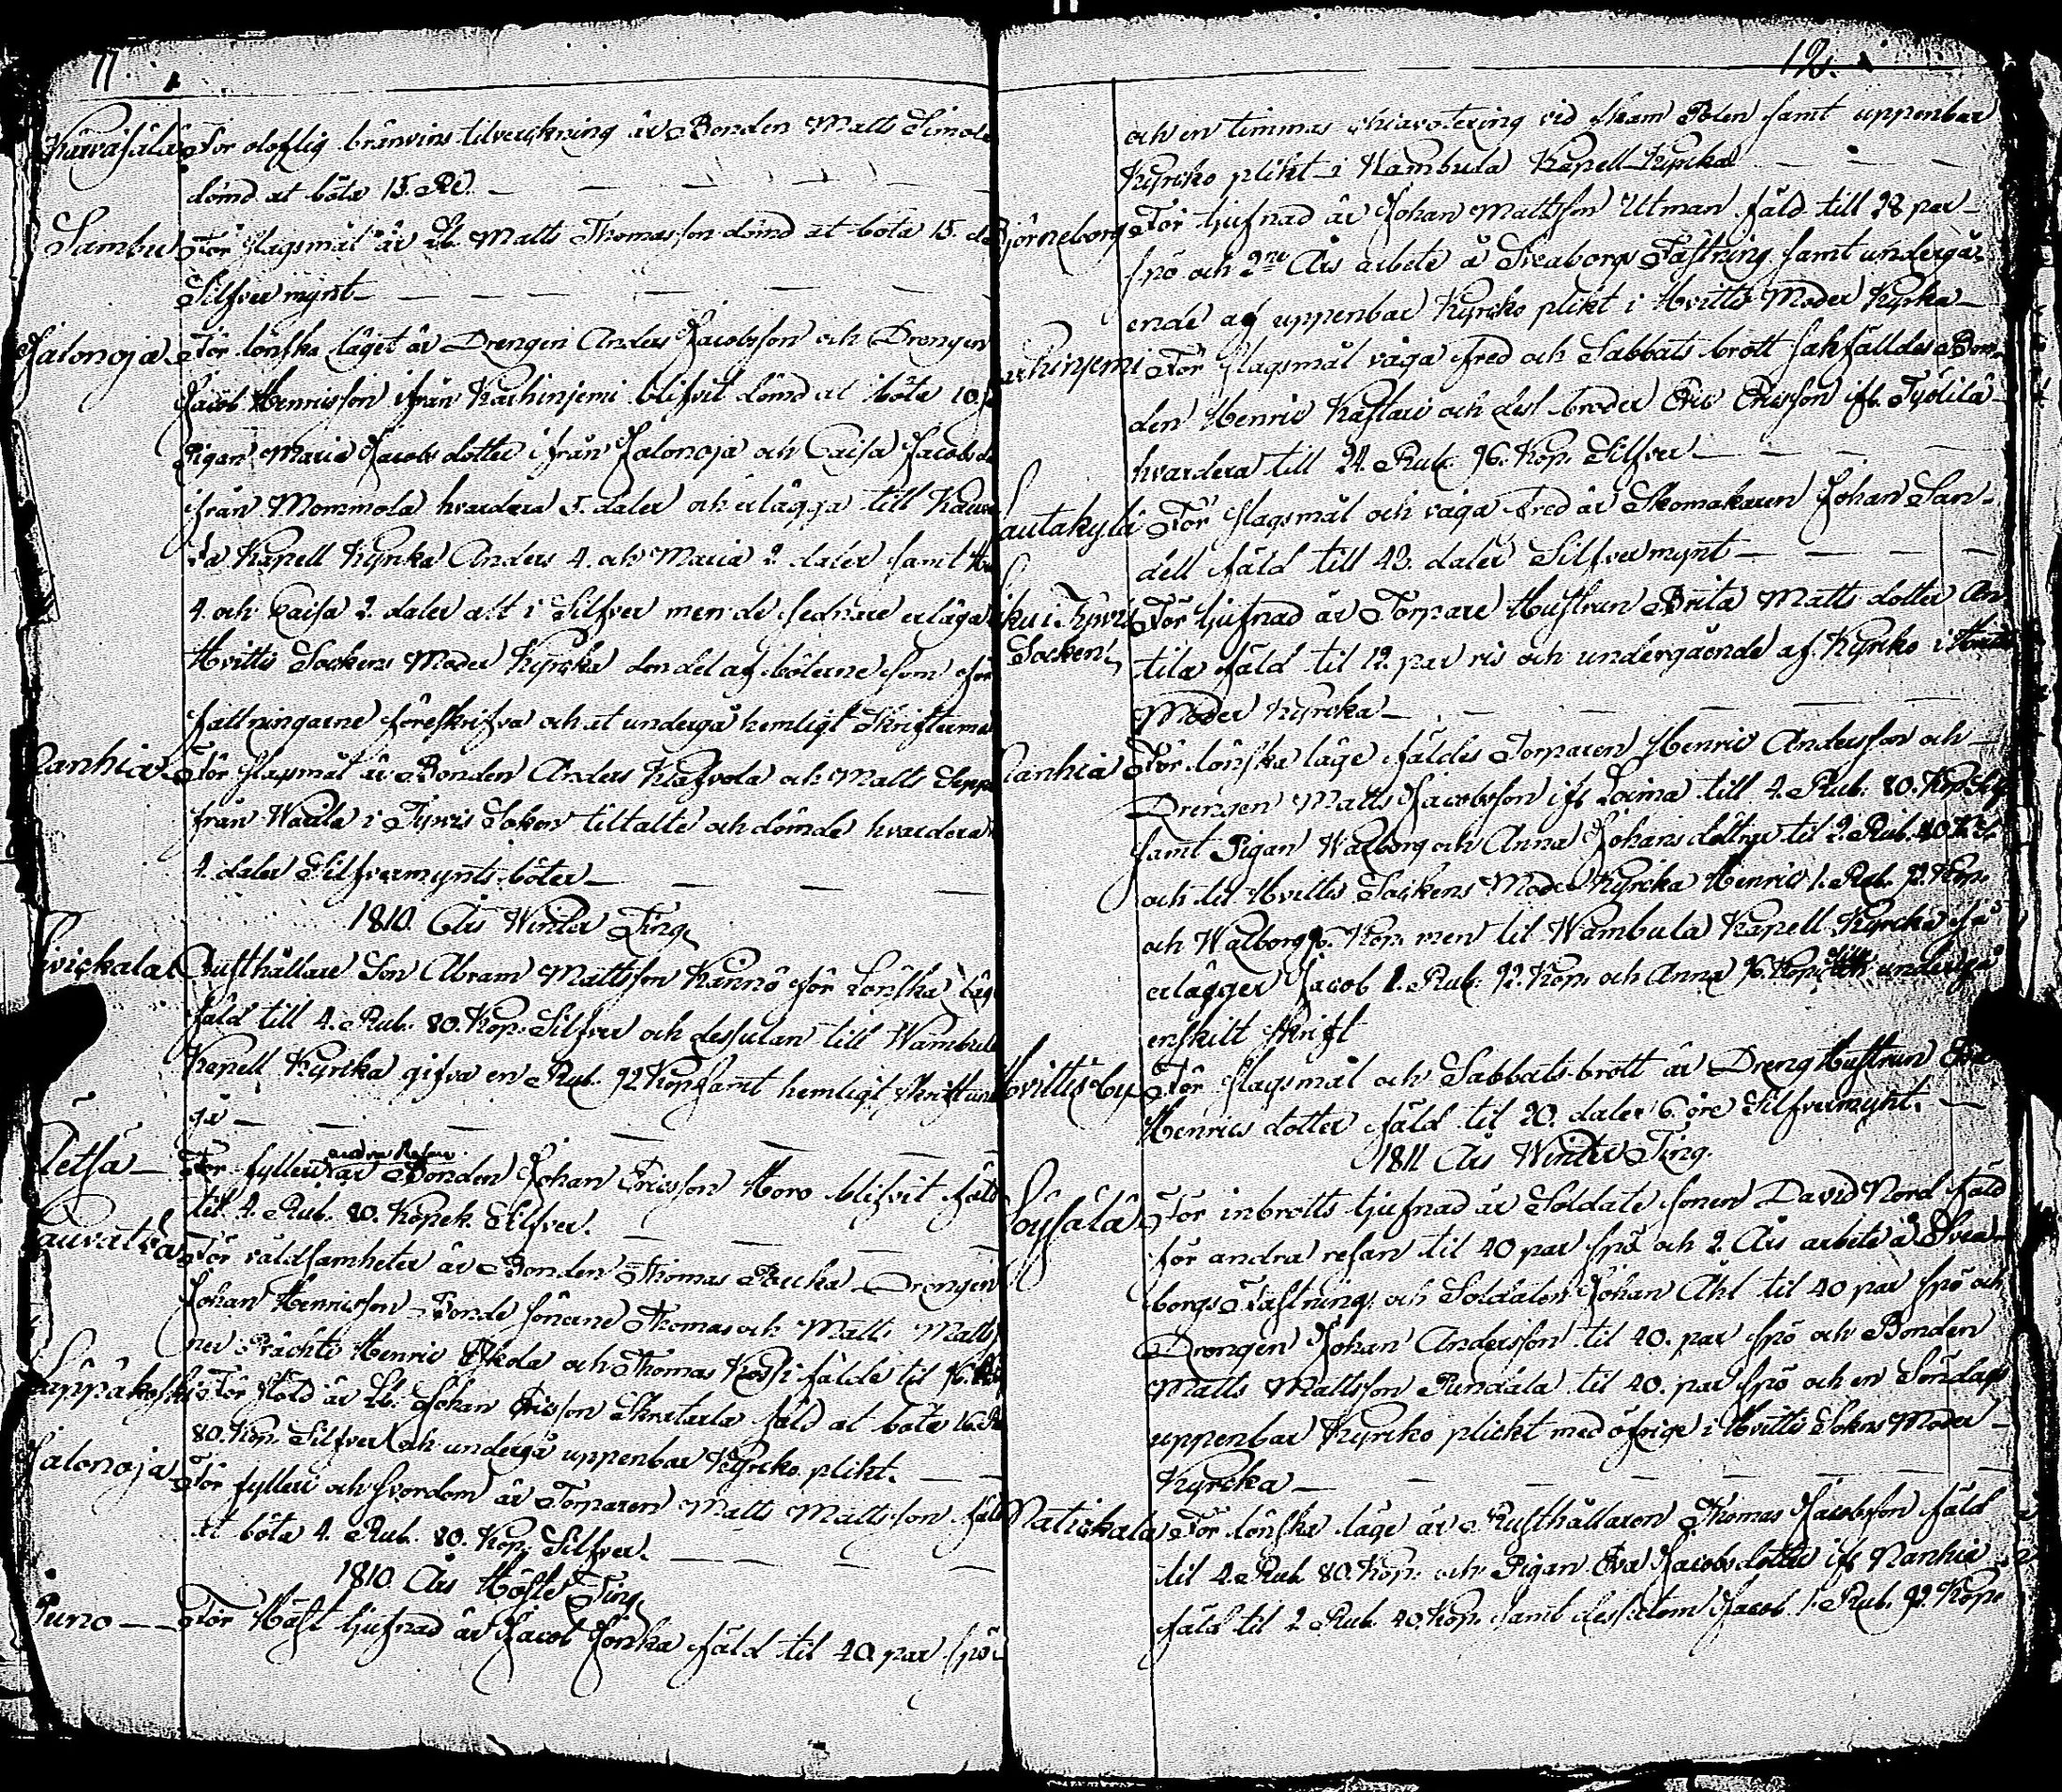 11
Karvasåla För oloflig bränvins tilverckning är Bonden Matts Simola
dömd at böta 15. Rd.
Sambu För slagsmål är Lb. Matts Thomasson dömd at böta 15. d
Silfver mynt
Jalonoja För lönska läget är Drengen Anders Jacobsson och Drengen
Jacob Henricsson ifrån Karhinjemi blifvit dömd at böta 10.
Pigan Maria Jacobs dotter ifrån Jalonoja och Caisa Jacobs do
ifrån Mommola hvardera 5. daler och erlägga till Kauva
Kapell Kyrcka Anders 4. och Maria 2. daler samt
4. och Caisa 2. daler alt i Silfver men de sednare erläga
Hvittis Sockens Moder Kyrcka den del af böterne som för
fattningarne föreskrifva och at undergå hemligt Skriftermå
Nanhia För slagsmål är Bonden Anders Klafvola och Matts Seppä
från Waula i Tyrvis Soken tiltalte och dömde hvardera
4. daler Silfvermynts böter
1810. Års Winter Ting
Kivickala Rusthållare Son Abram Mattsson Kånnö för Lönska läge
fäld till 4. Rub. 80. Kop. Silfver och dessutan till Wambula
Kapell Kyrcka gifva en Rub. 92 Kop. samt hemligt skrift und
gå
Letsa För fylleri andra Resan är Bonden Johan Ericsson Horo blifvit fäld
til 4. Rub. 80. Kopek. Silfver.
Rauvatza För våldsamheter är Bonden Thomas Rucka Drengen
Johan Henricsson Bonde sönerne Thomas och Matts Matts
ner Prächti Henric Eskola och Thomas Kossi fälde til 16.
Lappåkoski För stöld är Lb. Johan Ericsson Skratarla fäld at böta 16.
80. Kop. Silfver och undergå uppenbar Kyrcko plikt.
Jalonoja För fylleri och svordom är Torparen Matts Mattsson fäld
at böta 4. Rub. 80. Kop. Silfver.
1810. Års Höste Ting
Puno För Häst tjufnad är Jacob Jonka fäld til 40 par spö
12.
och en timmas skiavotering vid skam Pålen samt uppenbar
Kyrcko plikt i Wambula Kapell Kyrcka
Björneborg För tjufnad är Johan Mattsson Utman fäld till 28 par
spö och 2ne Års arbete å Sveaborgs Fästning samt undergå
ende af uppenbar Kyrcko plikt i Hvittis Moder Kyrka
arhinjemi För slagsmål våga fred och Sabbats brott sakfälldes Bon
den Henric Kastari och des broder Eric Ericsson ifr. Työtilä
hvardera till 24. Rub. 96. Kop. Silfver
Sautakylä För slagsmål och våga fred är Skomakaren Johan San
dell fäld till 43. daler Silfvermynt
iku i Tyrvis Socken För tjufnad är Torpare Hustrun Brita Matts dotter An
tila fäld til 12. par ris och undergående af Kyrcko i Hvittis
Moder Kyrcka
Nanhia För lönska läge fäldes Torparen Henric Andersson och
Drengen Matts Jacobsson ifr Loima till 4. Rub. 80. Kop. Silf
samt Pigan Walborg och Anna Johans döttrar til 2. Rub. 40 K. S.
och til Hvittis Sockens Moder Kyrcka Henric 1. Rub. 92. Kop.
och Walborg 96. Kop. men til Wambula Kapell Kyrcka få
erlägger Jacob 1. Rub. 92. Kop. och Anna 96. Kop. undergå
enskilt skrift
Hvittis by För slagsmål och Sabbats-brott är Dreng Hustrun Eva
Henrics dotter fäld til 20. daler 6 öre Silfvermynt.
1811 Års Winter Ting.
Loysälä För inbrotts tjufnad är Soldate sonen David Nord fäld
för andra resan til 40 par spö och 2. Års arbite å Svea
borgs Fästning, och Soldaten Johan Åhl til 40 par spö och
Drengen Johan Andersson til 40. par spö och Bonden
Matts Mattsson Pundala til 40. par spö och en Söndags
uppenbar Kyrcko plickt med öfrige i Hvittis Sokns Moder
Kyrcka
Matickala För lönska läge är Rusthållaren Thomas Jacobsson fäld
til 4. Rub. 80. Kop. och Pigan Eva Jacobs dotter ifr Nanhia
fäld til 2. Rub. 40. Kop. samt dessutom Jacob 1. Rub. 92. Kop.